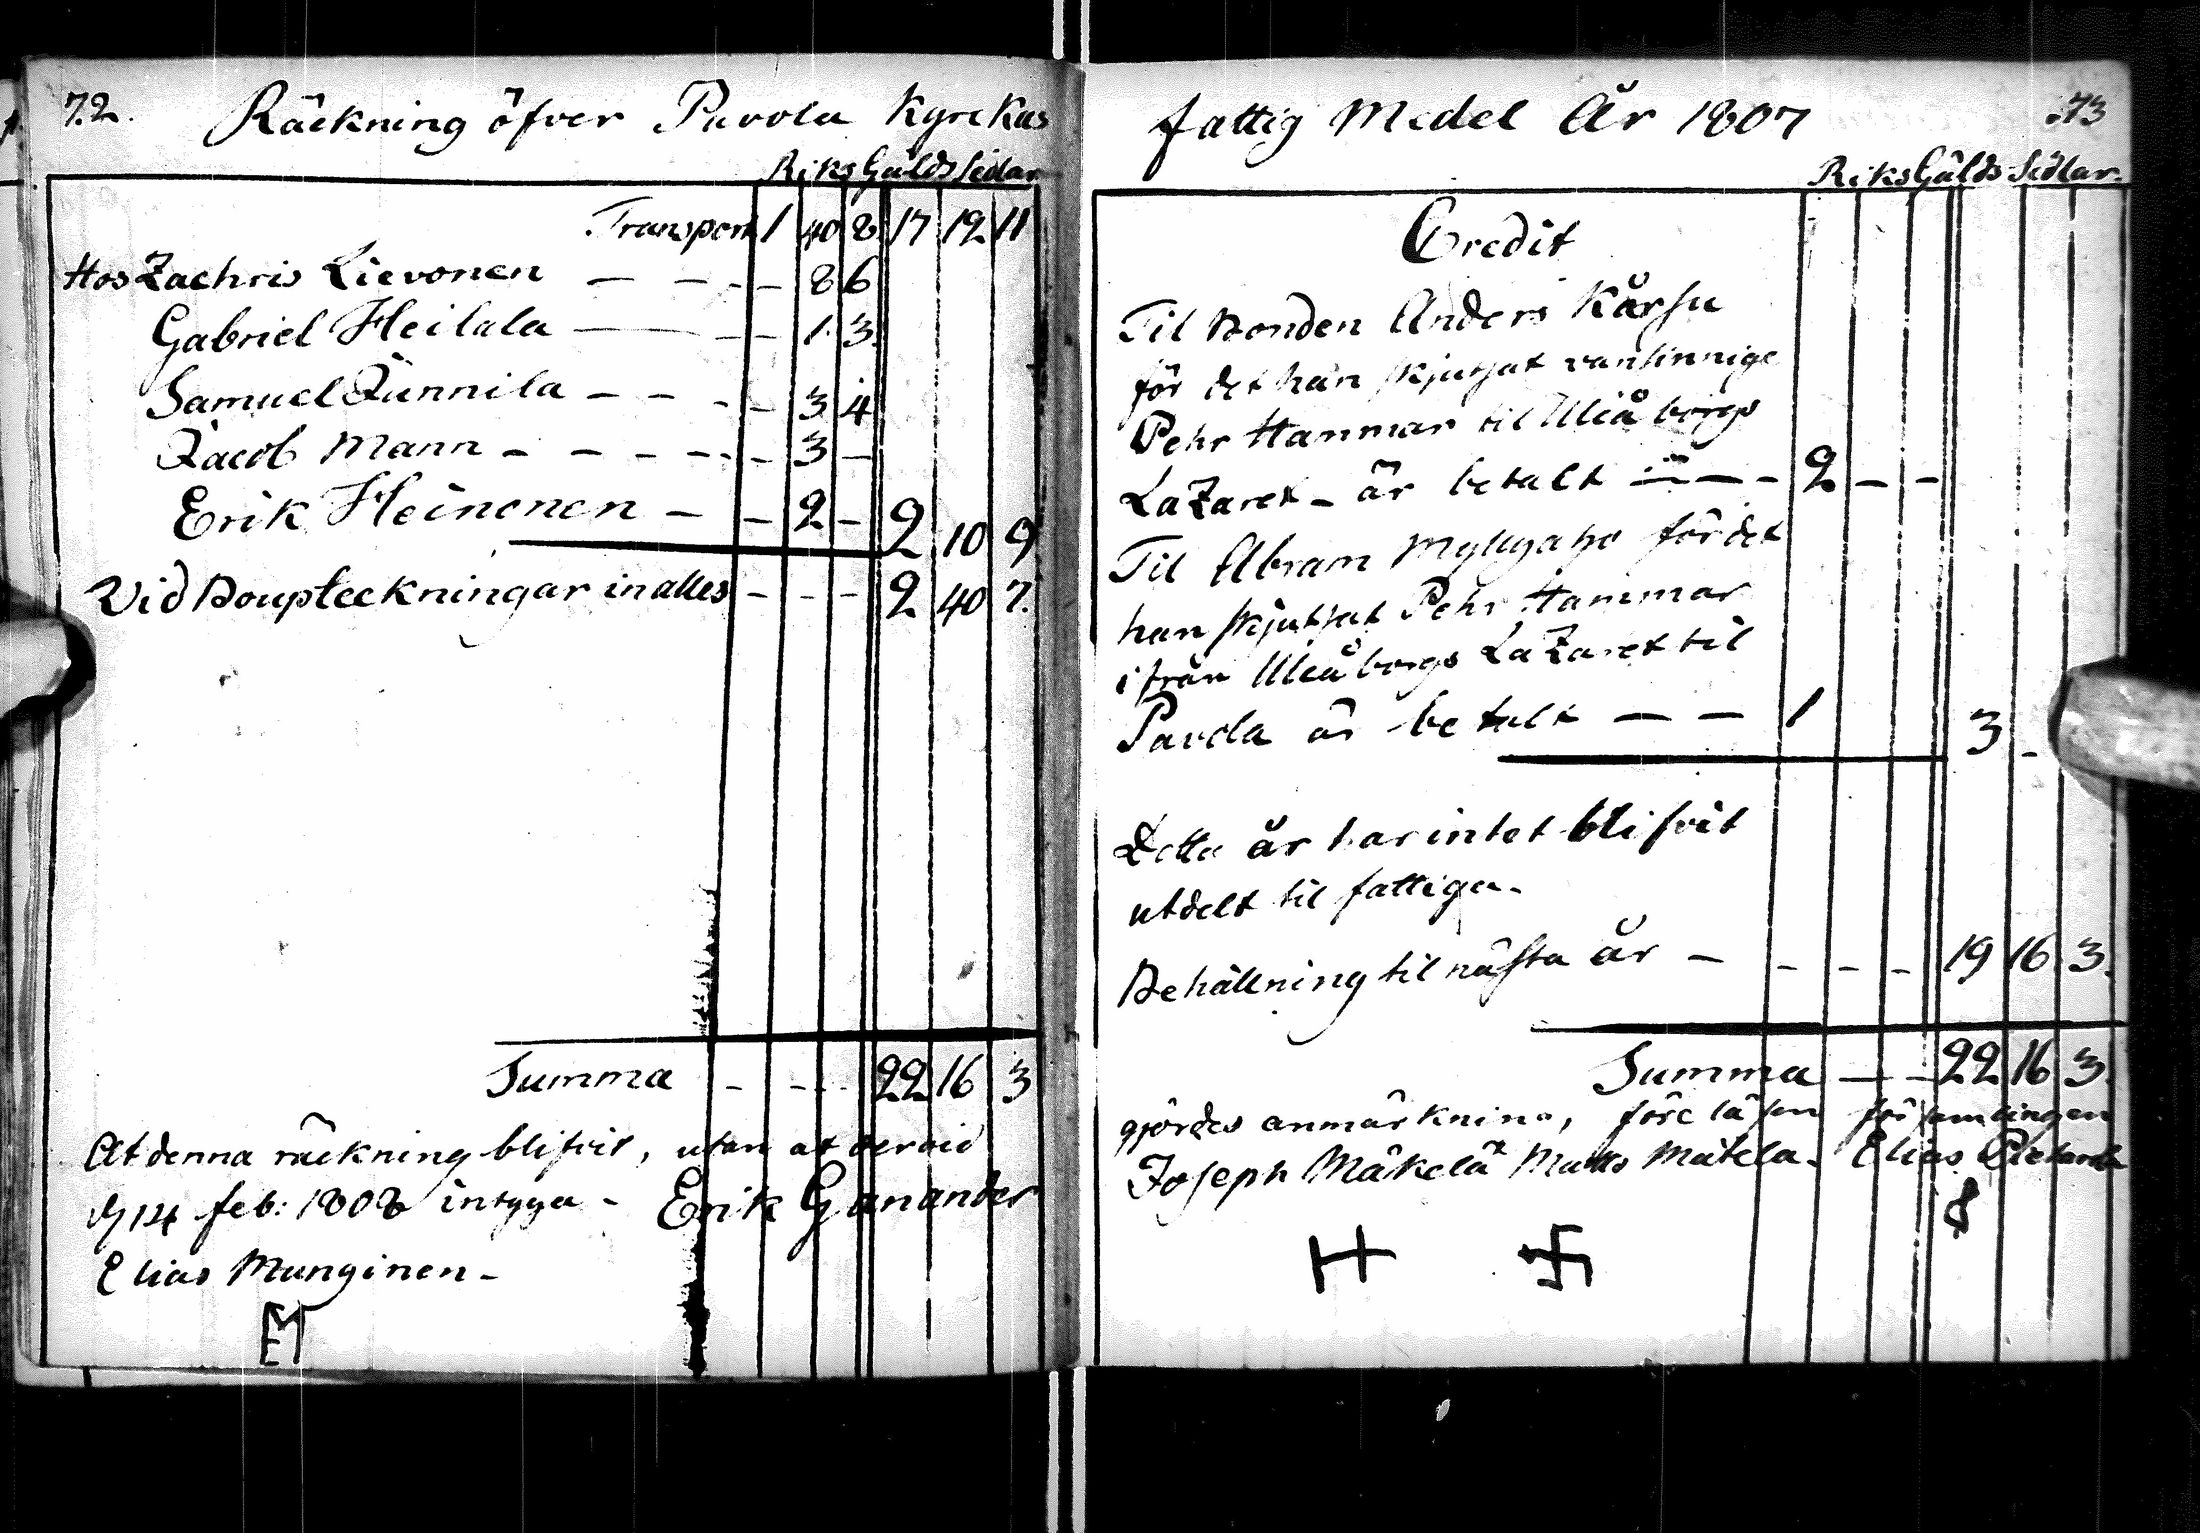 72.
Räckning öfver Pavola Kyrckas
Riks Gälds Sedlar
Transport 1 40 8. 17 12 11
Hos Zachris Lievonen — — - - 8 6
Gabriel Heilala — — - - 1. 3.
Samuel Junnila — - - - 3 4
Jacob Mann - - - - - - 3 —
Erik Heinonen — — 2 — 2 10 9
Vid Boupteckningar in alles - - - 2 40 7.
Summa - - - 22 16 3
At denna räckning blifvit, utan at dervid
d 14 feb: 1808 intyga - Erik Ganander
Elias Munginen -
EM
73
fattig Medel År 1807
Riks Gälds Sedlar.
Credit
Til Bonden Anders Kärsu
för det han skjutsat vansinnige
Pehr Hammar til Uleåborgs
LaZaret - är betalt — — - 2 — —
Til Abram Myllyaho för det
han skjutsat Pehr Hammar
ifrån Uleåborgs LaZaret til
Pavola är betalt — — 1 3 -
Detta år har intet blifvit
utdelt til fattiga -
Behållning til nästa år — - - - 19 16 3.
Summa — - 22 16 3.
gjordes anmärkning, före läsen församlingen
Joseph Mäkelä Matts Matela. Elias